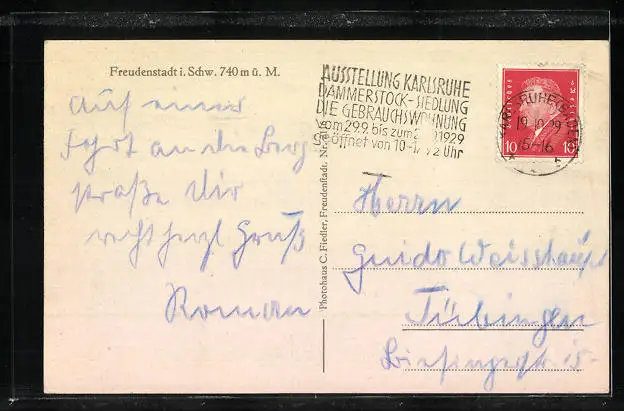 Freudenstadt i. Schw. 740 m ü. M.
Auf einer
Fahrt an die Berg
straße Dir
recht herzl Gruß
Roman
Photohaus C. Fiedler, Freudenstadt. Nr.
AUSSTELLUNG KARLSRUHE
DAMMERSTOCK-SIEDLUNG
DIE GEBRAUCHSWOHNUNG
vom 29.9. bis zum 1929
Geöffnet von 10- Uhr
KARLSRUHE
19.10.29
15-16
10 10
Herrn
Guido Weisshaupt
Tübingen
15